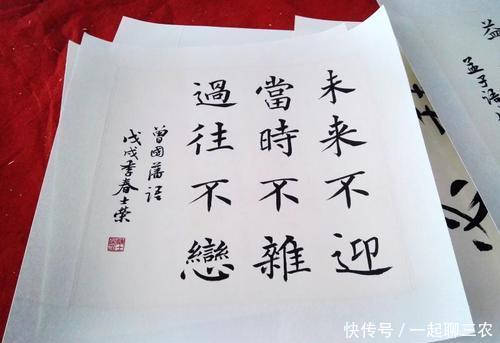 未来不迎
當時不雜
過往不戀
曾國藩语
戊戌季春士荣
孟子语
快传号／一起聊三农